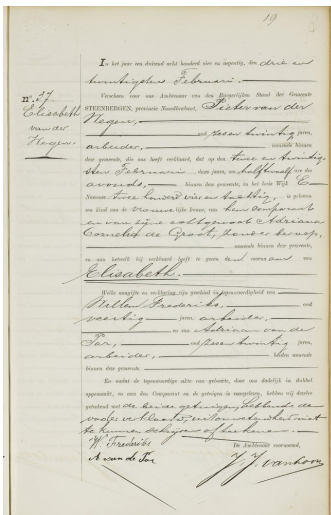 19
In het jaar een duizend acht honderd vier en negentig, den drie en
twintigsten Februari.
Verscheen voor ons Ambtenaar van den Burgerlijken Stand der Gemeente
STEENBERGEN, provincie Noordbrabant, Pieter van der
Hegen,
oud zes en twintig jaren,
arbeider, wonende binnen
deze gemeente, die ons heeft verklaard, dat op den twee en twintig-
sten Februari dezes jaars, des half twaalf ure des
avonds, binnen deze gemeente, in het huis Wijk E
Nummer twee honderd vier en dertig, is geboren
een kind van de vrouwelijke kunne, van hem comparant
en van zijne echtgenoot Adriana
Cornelia de Groot, zonder beroep,
wonende binnen deze gemeente,
en aan hetwelk hij verklaard heeft te geven den voornaam van
Elisabeth.
Welke aangifte en verklaring zijn geschied in tegenwoordigheid van
Willem Frederiks, oud
veertig jaren, arbeider,
en van Adriaan van de
Par, oud zes en twintig jaren,
arbeider, beiden wonende
binnen deze gemeente.
En omdat de tegenwoordige akte van geboorte, door ons dadelijk in dubbel
opgemaakt, en aan den Comparant en de getuigen is voorgelezen, hebben wij dezelve
geteekend met de beide getuigen, hebbende de
vader verklaard, niet
te kunnen schrijven of teekenen
W. Frederiks
A van de Par
De Ambtenaar voornoemd,
J. J. van Loon
no. 37
Elisabeth
van der
Hegen